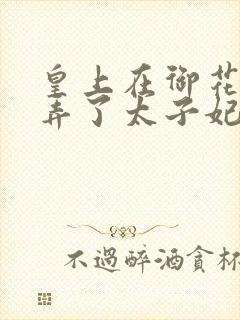 皇上在御花
弄了太子妃
不過醉酒貪杯